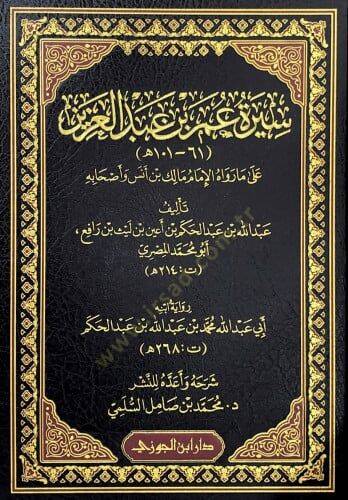 سيرة عمر بن عبد العزيز
(٦١-١٠١هـ)
على ما رواه الإمام مالك بن أنس وأصحابه
تأليف
عبد الله بن عبد الحكم بن أعين بن ليث بن رافع،
أبو محمد المصري
(ت: ٢١٤هـ)
رواية ابنه
أبي عبد الله محمد بن عبد الله بن عبد الحكم
(ت: ٢٦٨هـ)
شرحه وأعده للنشر
د. محمد بن صامل السلمي
دار ابن الجوزي